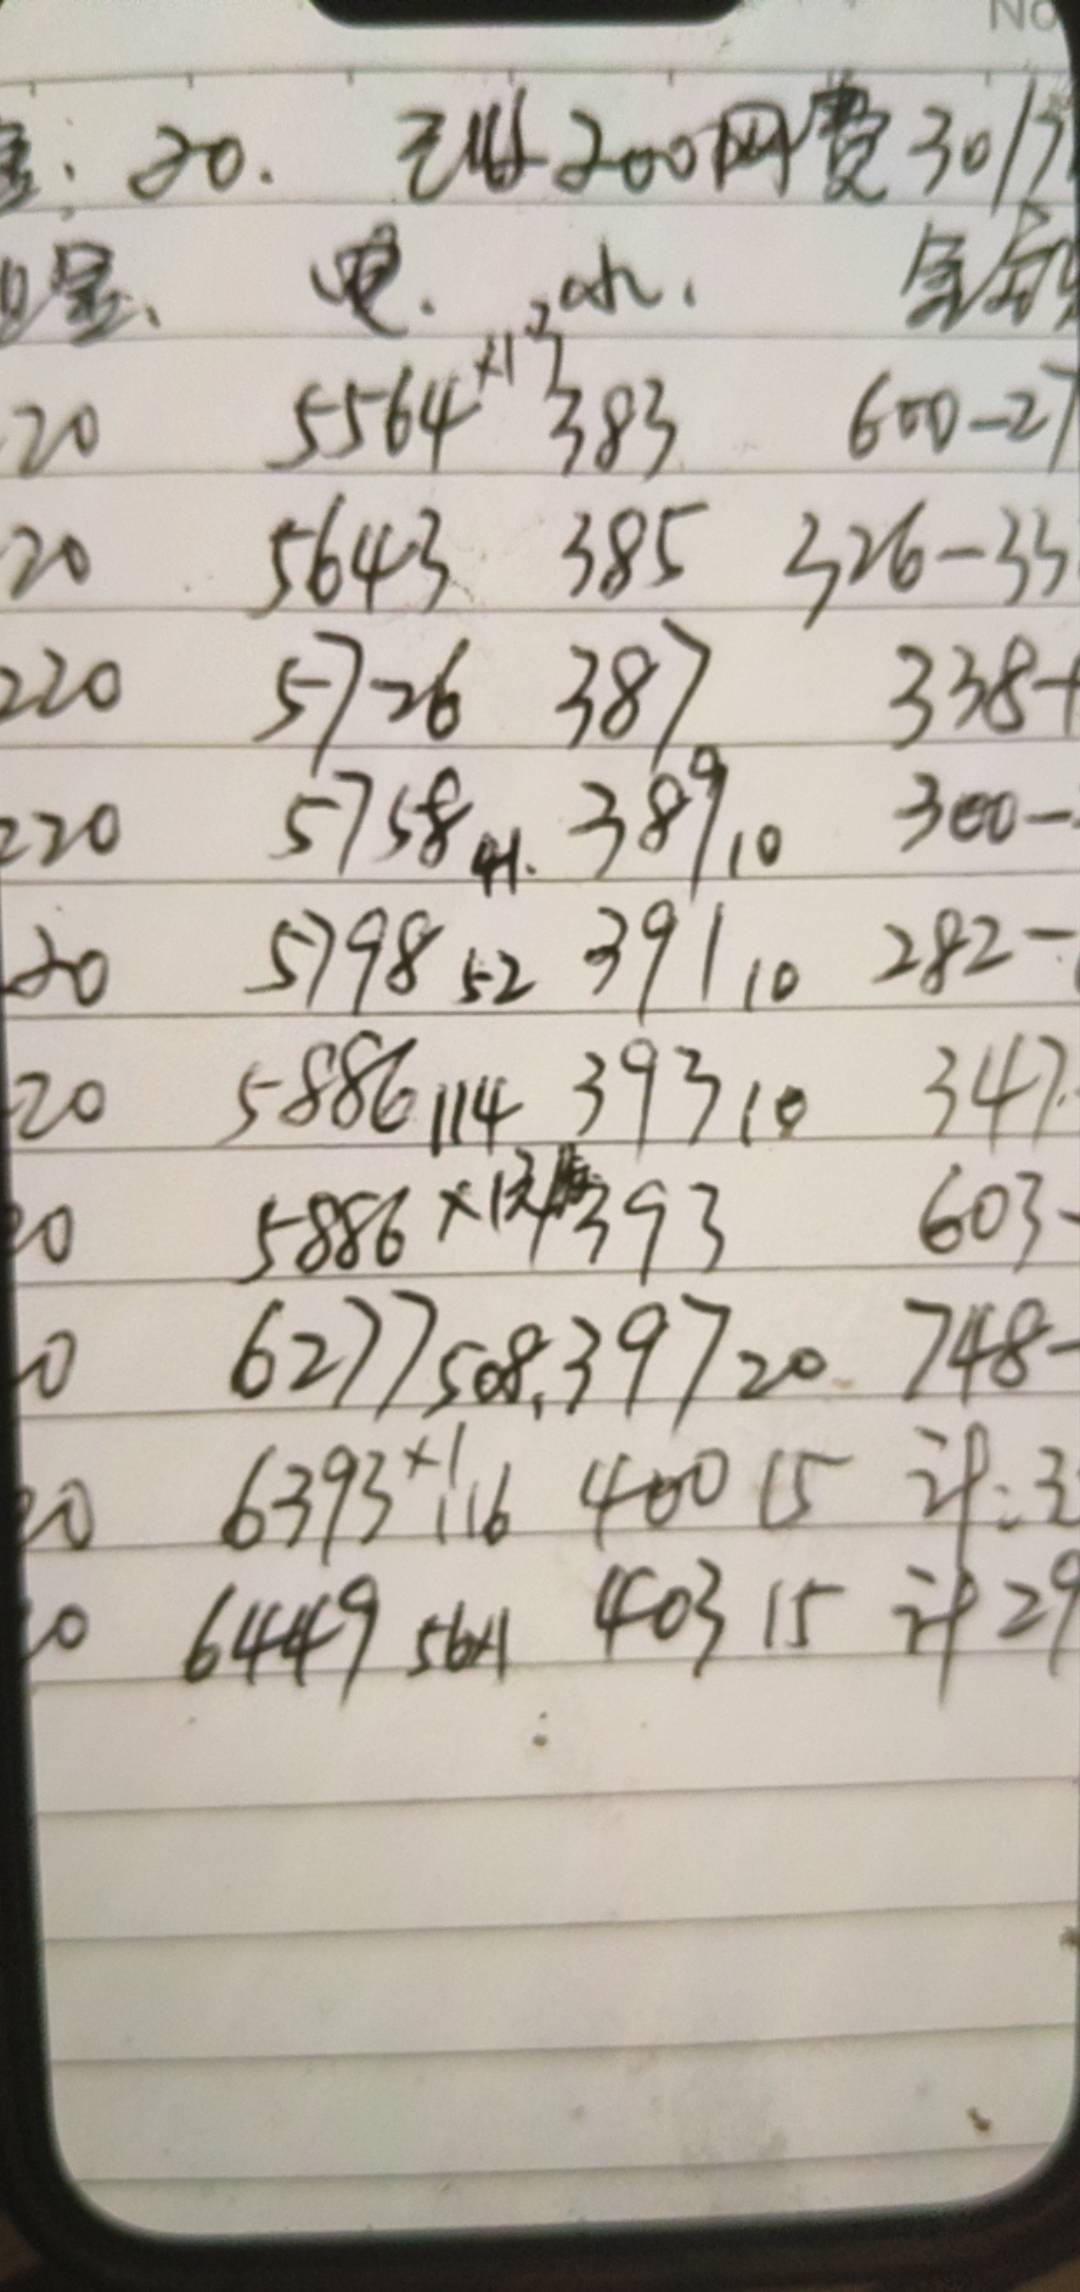 No
: 20. 200网费30/
电. 水. 金额
20 5564 ×1 383 600-27
20 5643 385 326-33
220 5726 387 338+
220 5758 41. 389 10 300-
20 5798 52 391 10 282-
20 5886 114 393 10 347
20 5886 ×1 393 603-
0 6277 508. 397 20 748-
20 6393 ×1 116 400 15 计:3
0 6449 56×1 403 15 计29